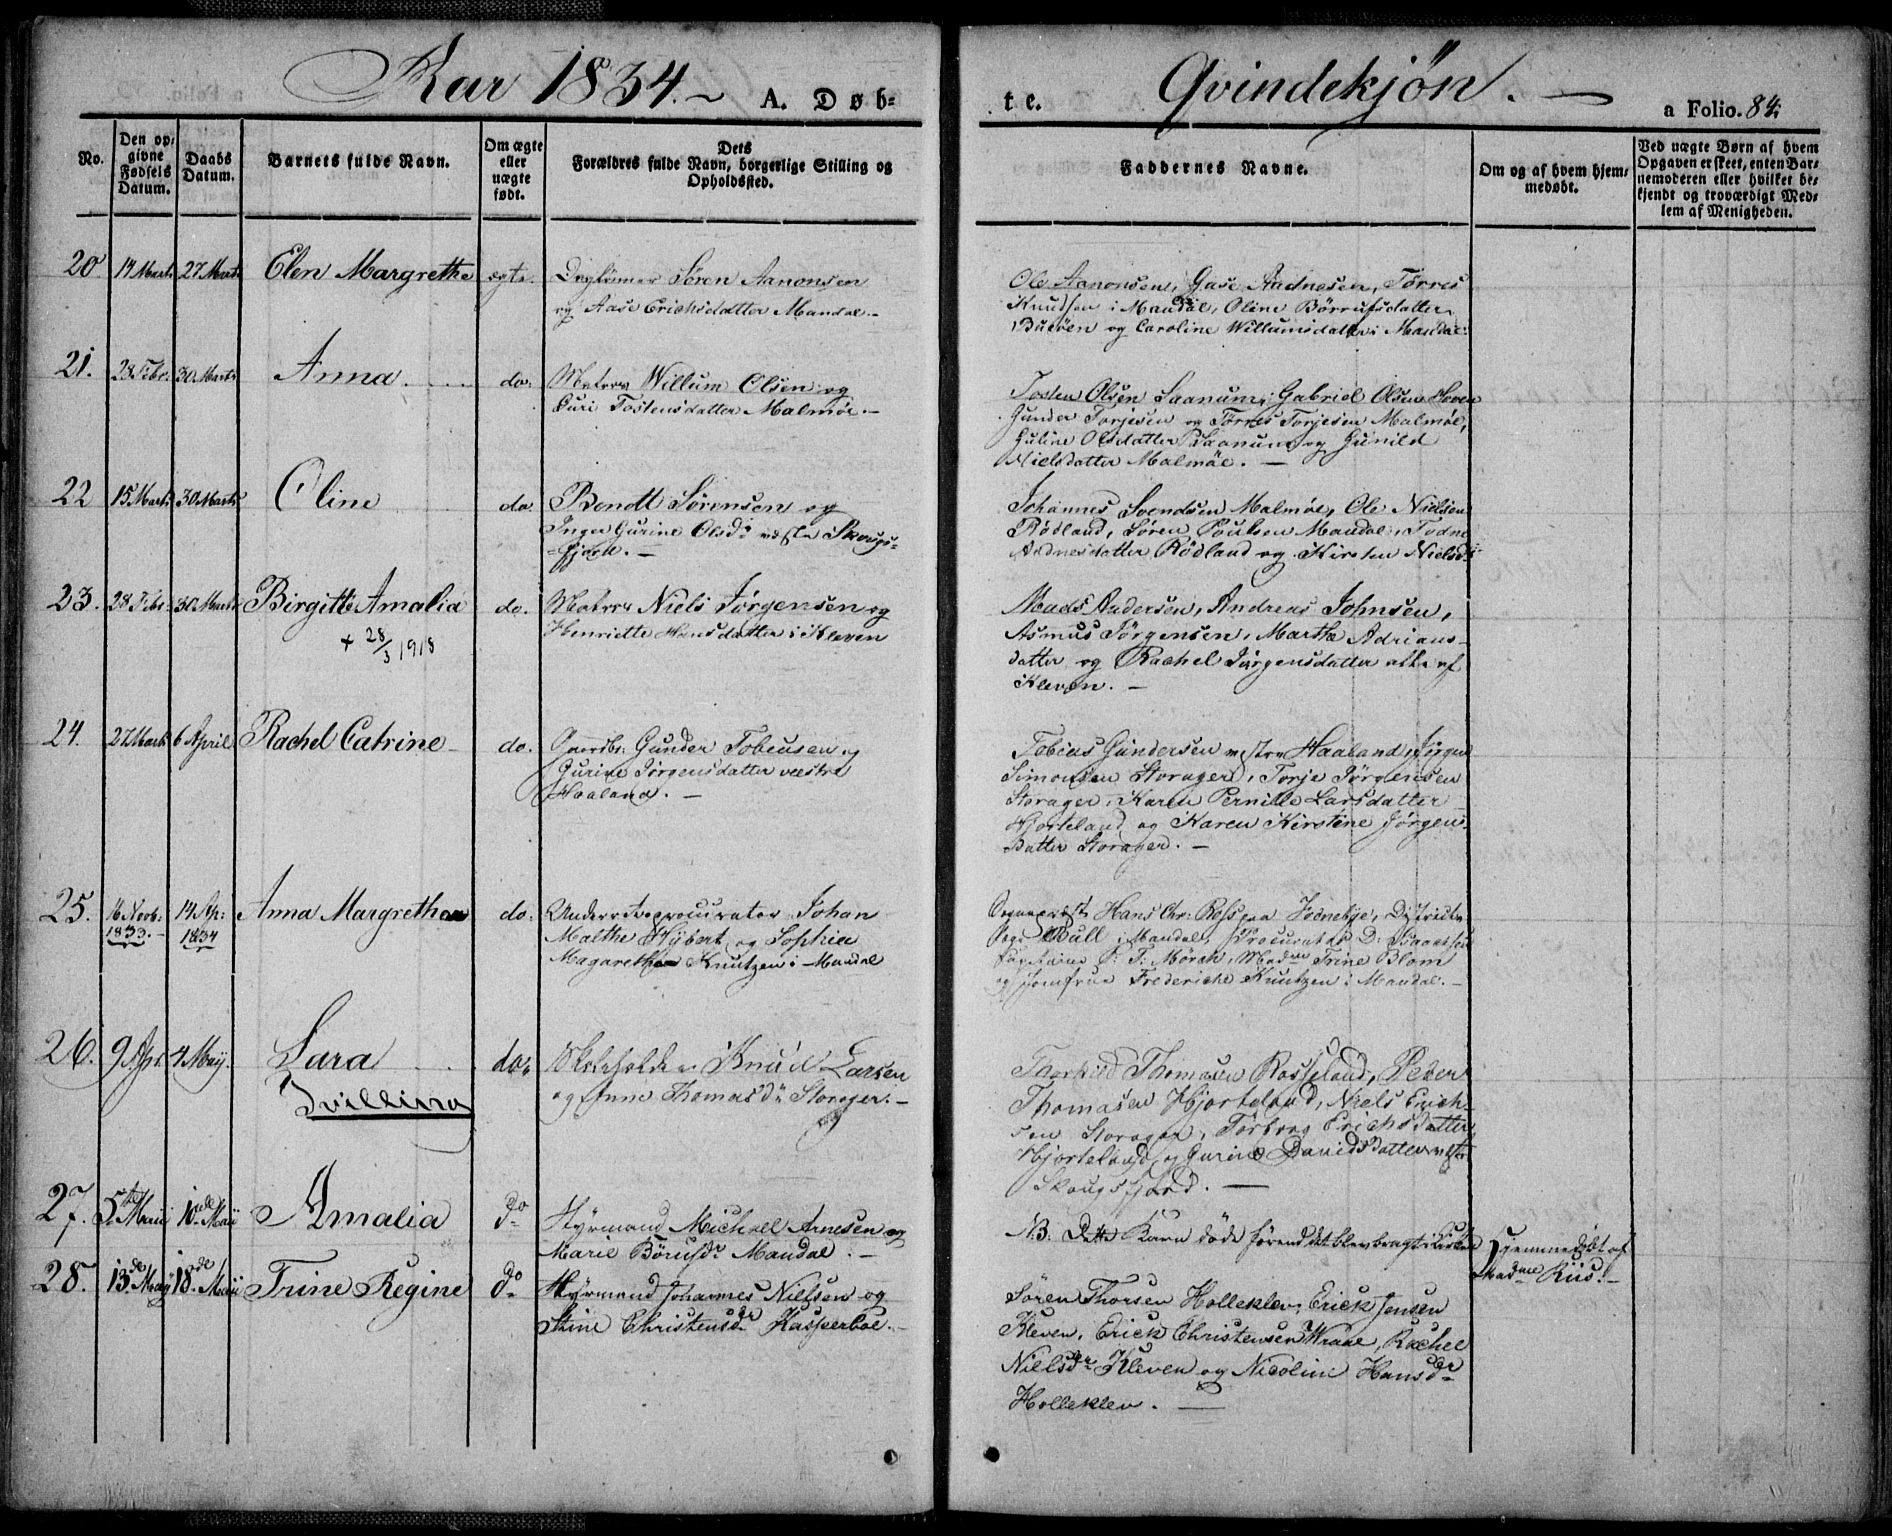 Aar 1834. A. Døb=
te. Qvindekjøn. a Folio. 84.
No.
Den op=
givne
Fødsels
Datum.
Daabs
Datum.
Barnets fulde Navn.
Om ægte
eller
uægte
født.
Dets
Forældres fulde Navn, borgerlige Stilling og
Opholdssted.
Faddernes Navne.
Om og af hvem hjem=
medøbt.
Ved uægte Børn af hvem
Opgaven er skeet, enten Bar=
nemoderen eller hvilket be=
kjendt og troværdigt Med=
lem af Menigheden.
20 14 Marts 27 Marts Elen Margrethe ægte.
Søren Aanonsen
og Aase Erichsdatter Mandal.-
Ole Aanonsen, Aadnesen, Tørres
Knudsen i Mandal, Oline Børrufsdatter
og Caroline Willumsdatter i Mandal.
21. 28 Febr: 30 Marts Anna. do:
Matros Willum Olsen og
Guri Tostensdatter Malmøe.-
Tosten Olsen Saanum, Gabriel Olsen
Gunder Torjesen og Tørres Torjesen Malmøe,
Guline Olsdatter Saanum og Gunild
Nielsdatter Malmøe. -
22 15 Marts 30 Marts Oline do
Bendt Sørensen og
Inger Gurine Olsd: Skougs=
=fjord. -
Johannes Svendsen Malmøe, Ole Nielsen
Rødland, Søren Poulsen Mandal, Todne
Andnesdatter Rødland og Kirsten Nielsd:
23. 28 Febr: 30 Marts Birgitte Amalia do.
+ 28/3 1918
Matros Niels Jørgensen og
Henriette Hansdatter i Kleven
Mads Andersen, Andreas Johnsen,
Asmus Jørgensen, Marthe Adrians=
datter og Rachel Jørgensdatter alle af
Kleven. -
24. 27 Marts 6 April Rachel Catrine do.
Gaardb: Gunder Tobiasen og
Gurine Jørgensdatter vestre
Haaland. -
Tobias Gundersen vestre Haaland, Jørgen
Simonsen Storager, Torje Jørgensen
Storager, Karen Pernille Larsdatter
Hjorteland og Karen Kirstine Jørgens
Datter Storager. -
25. 16 Novb: 14 Ap: Anna Margretha do.
1833.- 1834
Underretsprocurator Johan
Malthe Hybert og Sophia
Magaretha Knutzen i Mandal
Hans Chr: Ross
Bull i Mandal, Procurator D: Isaachsen
Mørch, Madme Trine Blom
og Jomfrue Frederiche Knutzen i Mandal.-
26. 9 Apr. 4 May. Sara do.
Tvilling
Skoleholder Knud Larsen
og Anne Thomasdr Storager.-
Thomasen Rosseland, Peder
Thomasen Hjorteland, Niels Erich=
sen Storager, Torborg Erichsdatter
Hjorteland og Gurine Davidsdatter
Skougsfjord. -
27. 5te Maij 10de Maij Amalia do
Styrmand Michael Arnesen og
Marie Børusdr Mandal. -
NB. Dette Barn døde førend det blev bragt i Kirken
Hjemmedøbt af
Madme Riis.-
28. 13de Maij 18de Maij Trine Regine do
Styrmand Johannes Nielsen og
Stine Christensdr Kasperboe.-
Søren Thorsen Holleklev, Erick Jensen
Kleven, Erick Christensen Wraae, Rachel
Nielsdr Kleven og Nicoline Hansdr
Holleklev. -